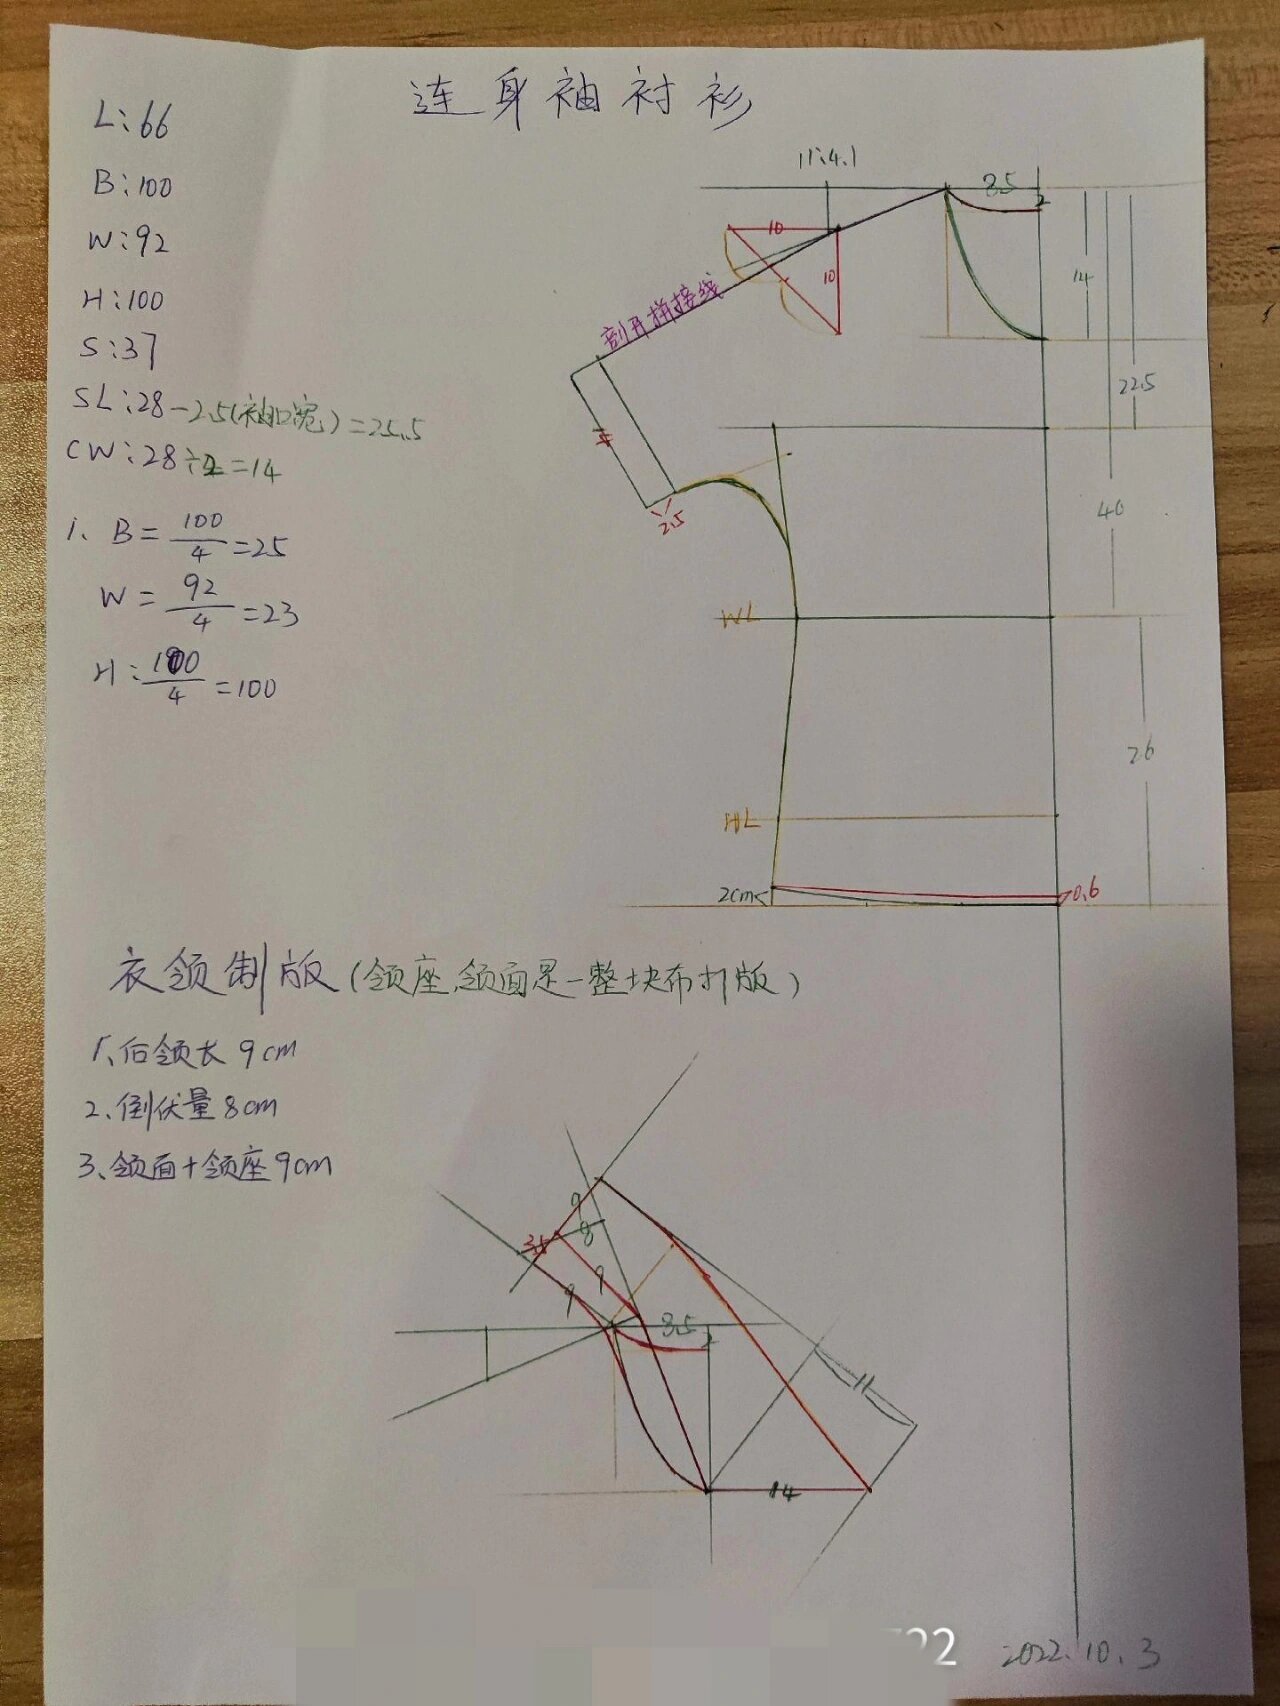 连身袖衬衫
L:66
B:100
W:92
H:100
S:37
SL:28-2.5(袖口宽)=25.5
CW:28÷2=14
1、B=100/4=25
W=92/4=23
H:100/4=100
11:4.1
8.5
2
10
10
14
剖开拼接线
22.5
2.5
40
WL
26
HL
2cm
0.6
衣领制版(领座,领面是一整块布打版)
1、后领长9cm
2、倒伏量8cm
3、领面+领座9cm
9
8
3.5
9
9
8.5
2
11
14
722
2022.10.3